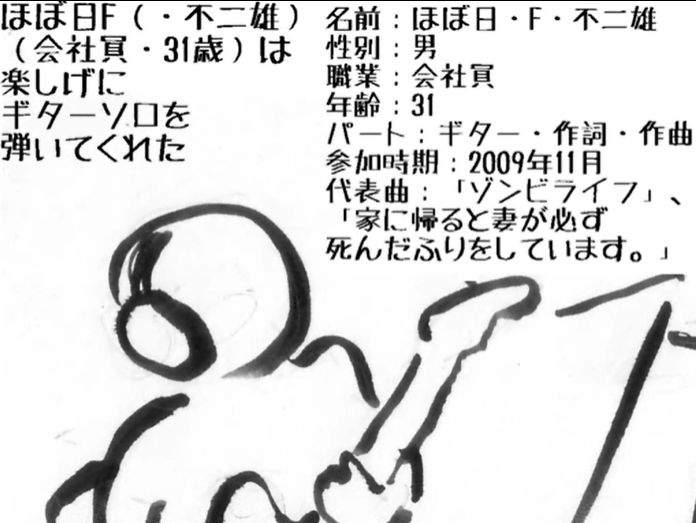 ほぼ日F（・不二雄）
（会社員・31歳）は
楽しげに
ギターソロを
弾いてくれた
名前：ほぼ日・F・不二雄
性別：男
職業：会社員
年齢：31
パート：ギター・作詞・作曲
参加時期：2009年11月
代表曲：「ゾンビライフ」、
「家に帰ると妻が必ず
死んだふりをしています。」